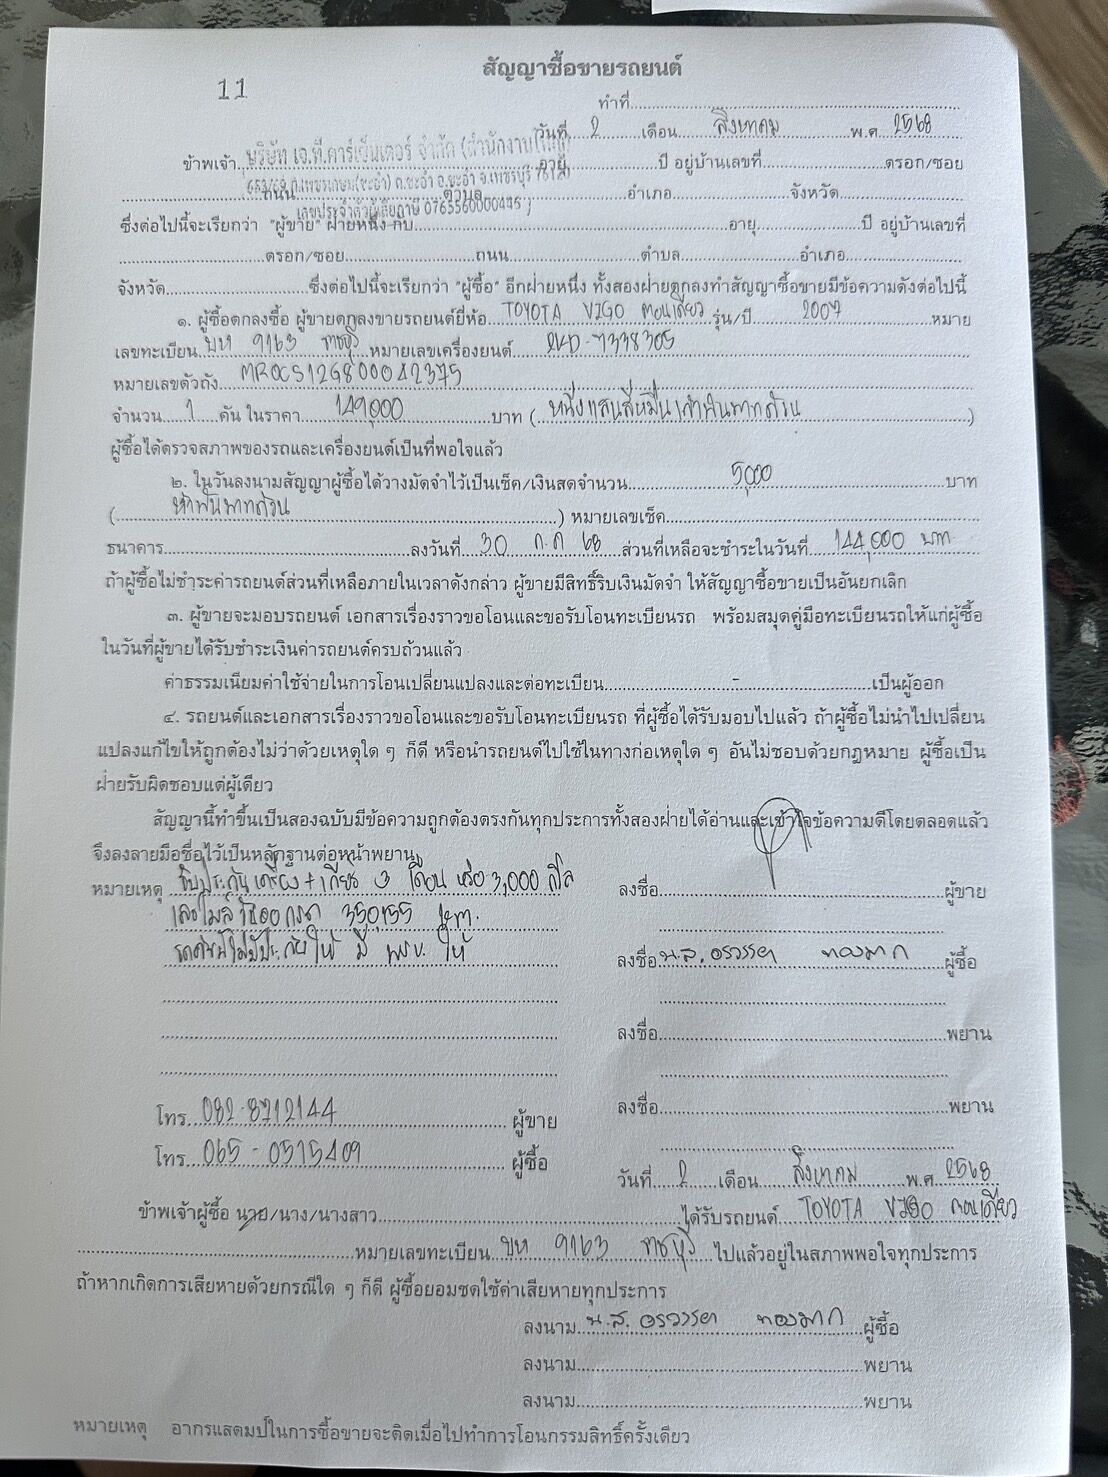 สัญญาซื้อขายรถยนต์
11
ทำที่
วันที่ 2 เดือน สิงหาคม พ.ศ. 2568
ข้าพเจ้า บริษัท เจ.ที.คาร์เซ็นเตอร์ จำกัด (สำนักงานใหญ่) อายุ ปี อยู่บ้านเลขที่ ตรอก/ซอย
ถ.เพชรเกษม(ชะอำ) ต.ชะอำ อ.ชะอำ จ.เพชรบุรี 76120
ถนน ตำบล อำเภอ จังหวัด
เลขประจำตัวผู้เสียภาษี 0765560000445
ซึ่งต่อไปนี้จะเรียกว่า "ผู้ขาย" ฝ่ายหนึ่ง กับ อายุ ปี อยู่บ้านเลขที่
ตรอก/ซอย ถนน ตำบล อำเภอ
จังหวัด ซึ่งต่อไปนี้จะเรียกว่า "ผู้ซื้อ" อีกฝ่ายหนึ่ง ทั้งสองฝ่ายตกลงทำสัญญาซื้อขายมีข้อความดังต่อไปนี้
๑. ผู้ซื้อตกลงซื้อ ผู้ขายตกลงขายรถยนต์ยี่ห้อ TOYOTA VIGO ตอนเดียว รุ่น/ปี 2007 หมาย
เลขทะเบียน บห 9163 ราชบุรี หมายเลขเครื่องยนต์ 2KD-7338305
หมายเลขตัวถัง MR0CS12G800042375
จำนวน 1 คัน ในราคา 149,000 บาท ( หนึ่งแสนสี่หมื่นเก้าพันบาทถ้วน )
ผู้ซื้อได้ตรวจสภาพของรถและเครื่องยนต์เป็นที่พอใจแล้ว
๒. ในวันลงนามสัญญาผู้ซื้อได้วางมัดจำไว้เป็นเช็ค/เงินสดจำนวน 5,000 บาท
( ห้าพันบาทถ้วน ) หมายเลขเช็ค
ธนาคาร ลงวันที่ 30 ก.ค 68 ส่วนที่เหลือจะชำระในวันที่ 144,000 บาท
ถ้าผู้ซื้อไม่ชำระค่ารถยนต์ส่วนที่เหลือภายในเวลาดังกล่าว ผู้ขายมีสิทธิ์ริบเงินมัดจำ ให้สัญญาซื้อขายเป็นอันยกเลิก
๓. ผู้ขายจะมอบรถยนต์ เอกสารเรื่องราวขอโอนและขอรับโอนทะเบียนรถ พร้อมสมุดคู่มือทะเบียนรถให้แก่ผู้ซื้อ
ในวันที่ผู้ขายได้รับชำระเงินค่ารถยนต์ครบถ้วนแล้ว
ค่าธรรมเนียมค่าใช้จ่ายในการโอนเปลี่ยนแปลงและต่อทะเบียน - เป็นผู้ออก
๔. รถยนต์และเอกสารเรื่องราวขอโอนและขอรับโอนทะเบียนรถ ที่ผู้ซื้อได้รับมอบไปแล้ว ถ้าผู้ซื้อไม่นำไปเปลี่ยน
แปลงแก้ไขให้ถูกต้องไม่ว่าด้วยเหตุใด ๆ ก็ดี หรือนำรถยนต์ไปใช้ในทางก่อเหตุใด ๆ อันไม่ชอบด้วยกฎหมาย ผู้ซื้อเป็น
ฝ่ายรับผิดชอบแต่ผู้เดียว
สัญญานี้ทำขึ้นเป็นสองฉบับมีข้อความถูกต้องตรงกันทุกประการทั้งสองฝ่ายได้อ่านและเข้าใจข้อความดีโดยตลอดแล้ว
จึงลงลายมือชื่อไว้เป็นหลักฐานต่อหน้าพยาน
หมายเหตุ รับประกันเครื่อง + เกียร์ 3 เดือน หรือ 3,000 กิโล
เลขไมล์ 350,155 km.
รถคันนี้ไม่มีประกันให้ มี พรบ. ให้
ลงชื่อ ผู้ขาย
ลงชื่อ น.ส. อรวรรยา ทองมาก ผู้ซื้อ
ลงชื่อ พยาน
ลงชื่อ พยาน
โทร. 082-8712144 ผู้ขาย
โทร. 065-0515409 ผู้ซื้อ
วันที่ 2 เดือน สิงหาคม พ.ศ. 2568
ข้าพเจ้าผู้ซื้อ นาย/นาง/นางสาว ได้รับรถยนต์ TOYOTA VIGO ตอนเดียว
หมายเลขทะเบียน บห 9163 ราชบุรี ไปแล้วอยู่ในสภาพพอใจทุกประการ
ถ้าหากเกิดการเสียหายด้วยกรณีใด ๆ ก็ดี ผู้ซื้อยอมชดใช้ค่าเสียหายทุกประการ
ลงนาม น.ส. อรวรรยา ทองมาก ผู้ซื้อ
ลงนาม พยาน
ลงนาม พยาน
หมายเหตุ อากรแสตมป์ในการซื้อขายจะติดเมื่อไปทำการโอนกรรมสิทธิ์ครั้งเดียว